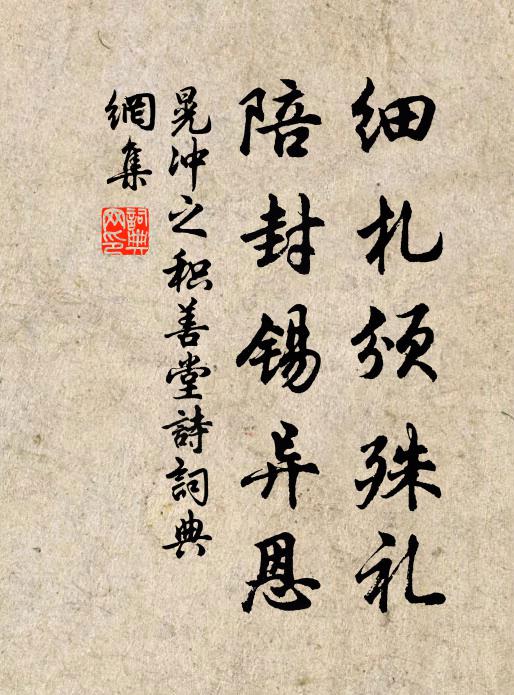 细札颁殊礼
陪封锡异恩
晁冲之积善堂詩詞典
網集
詞典
网印